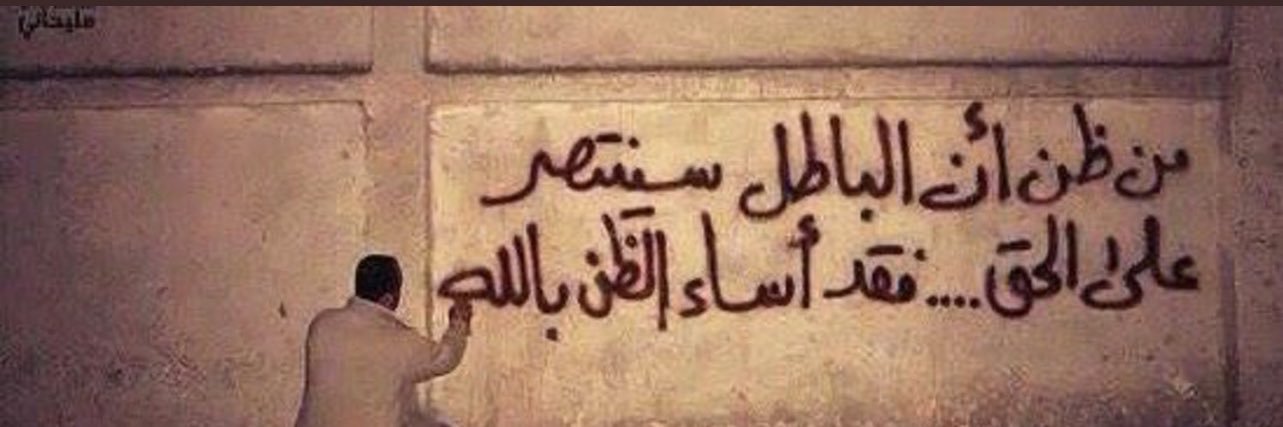 من ظن أن الباطل سينتصر
على الحق....فقد أساء الظن بالله